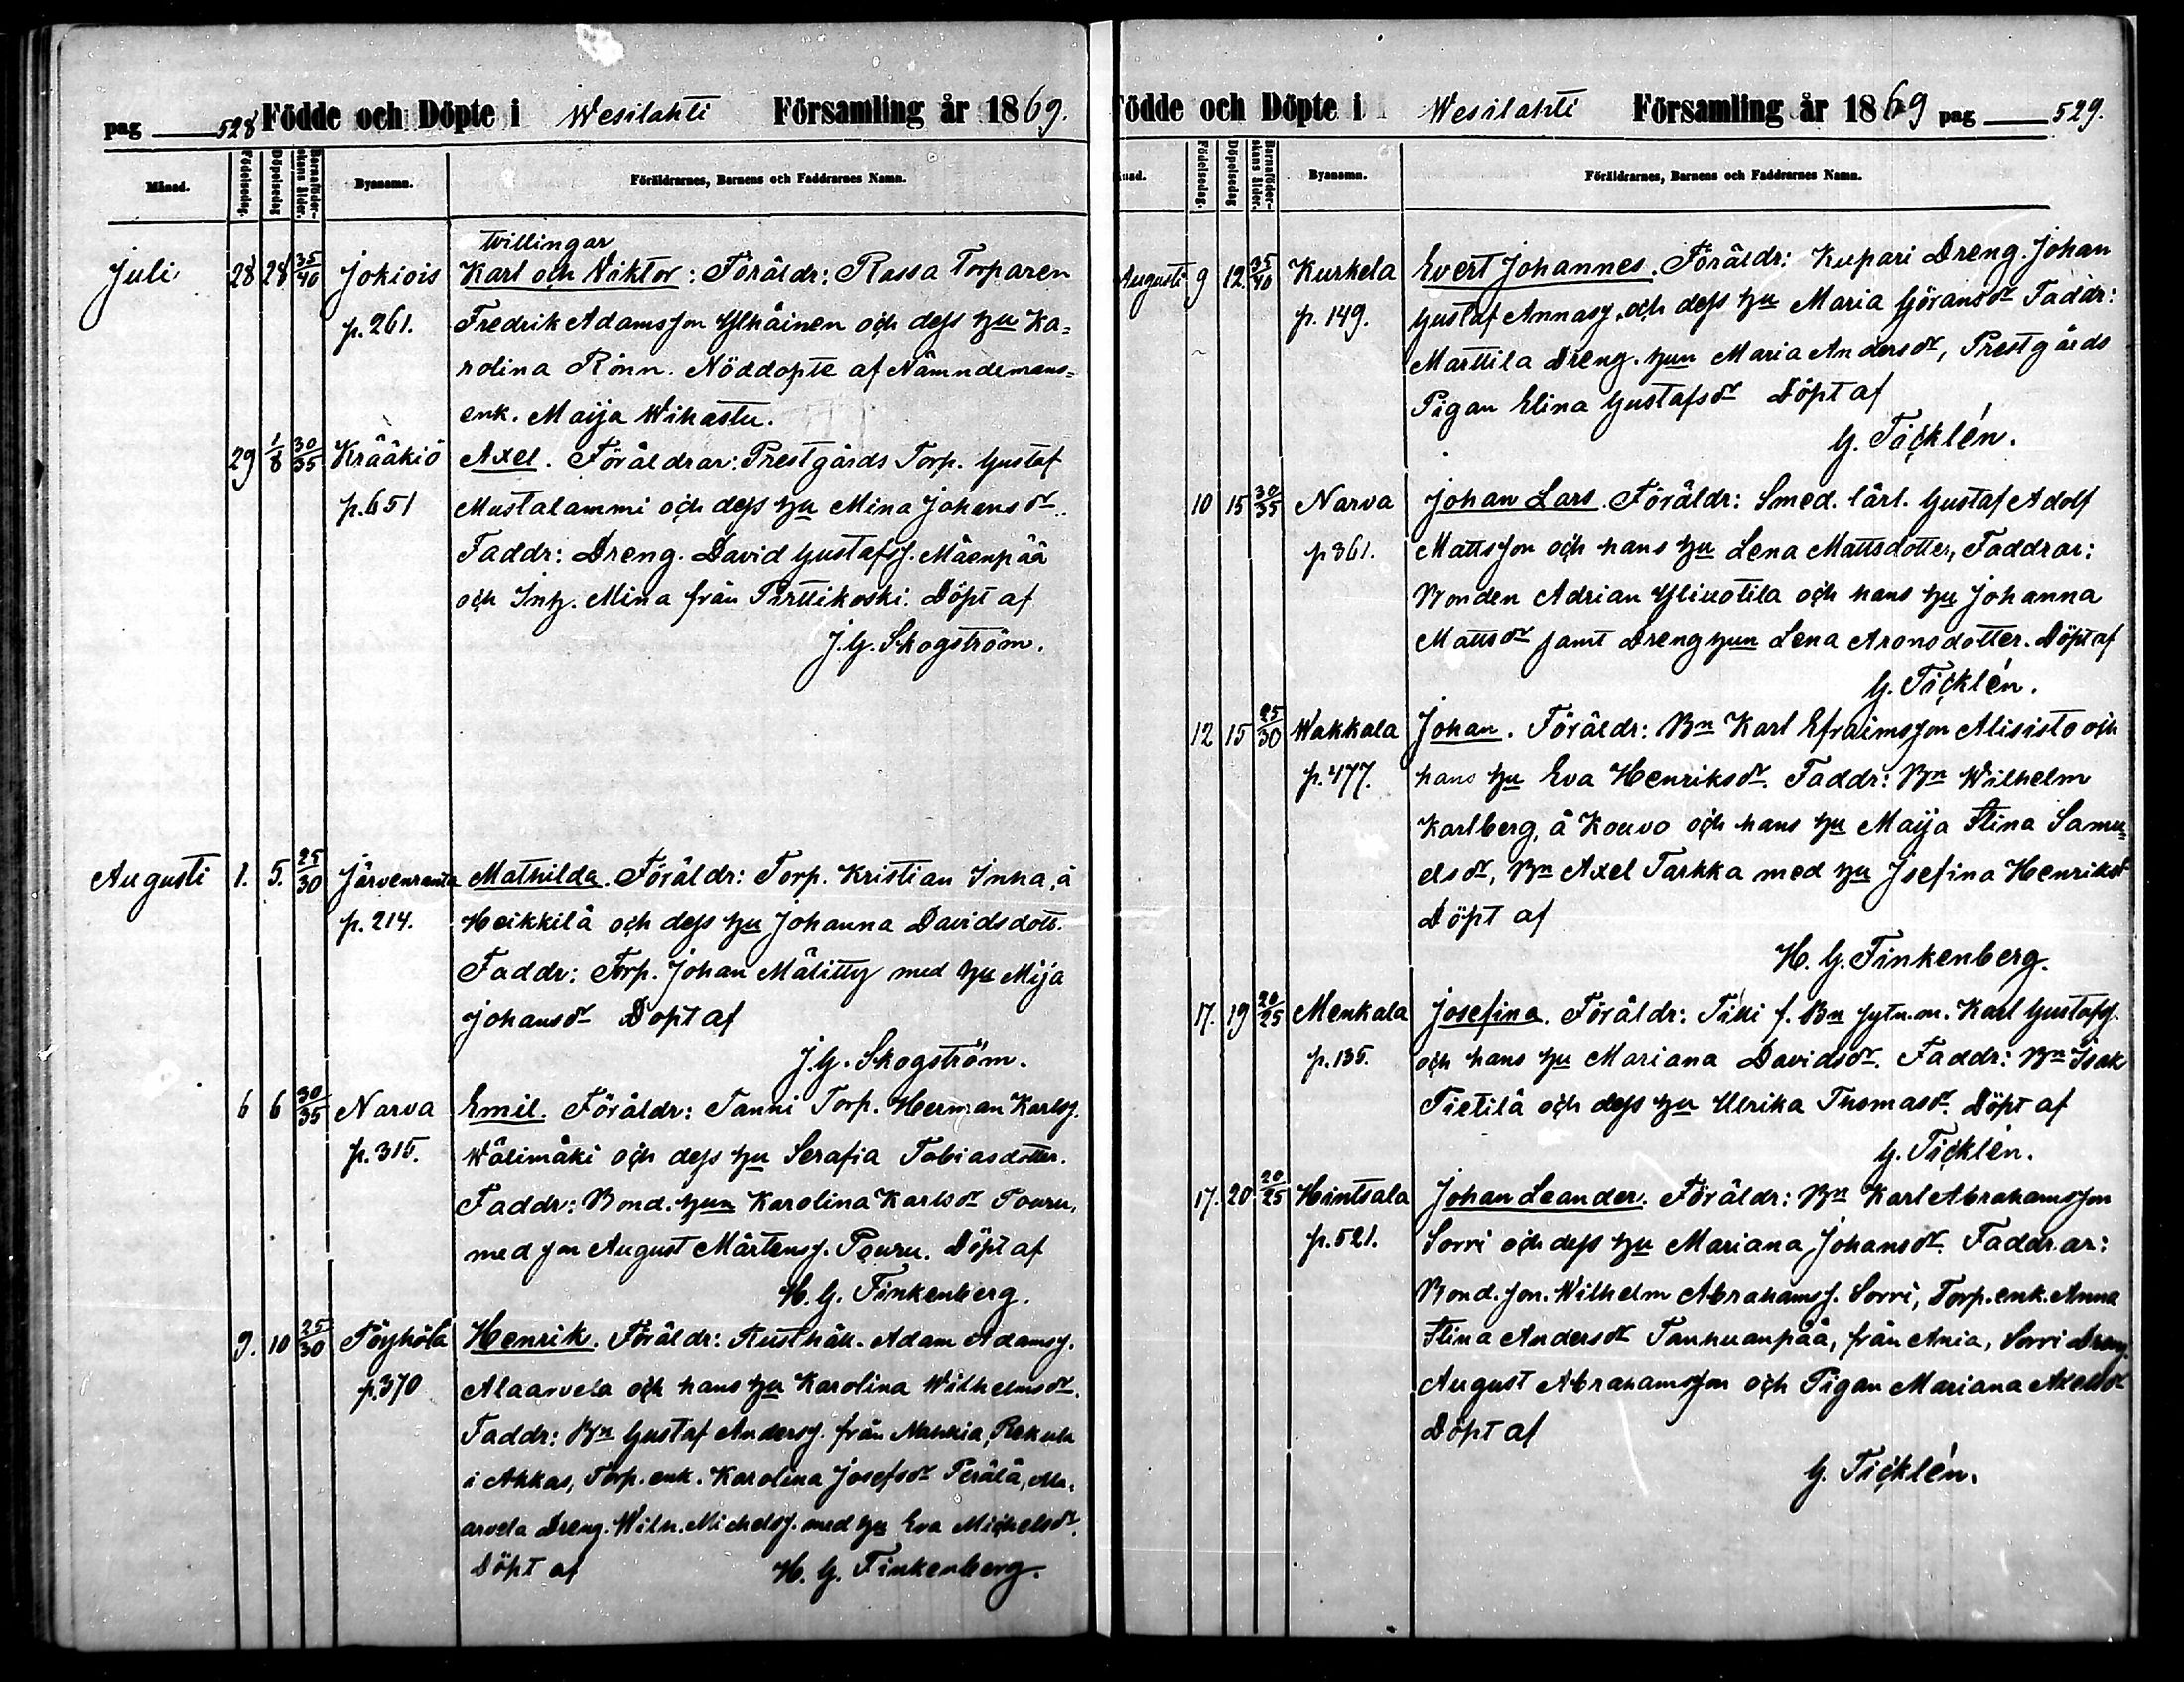 pag 528 Födde och Döpte i Wesilahti Församling år 1869.
Månad. Födelsedag. Döpelsedag Barnaföderskans ålder. Bynamn. Föräldrarnes, Barnens och Faddrarnes Namn.
tvillingar
Juli 28 28 35/40 Jokiois Karl och Wiktor: Föräldr: Rassa Torparen
p. 261. Fredrik Adamsson Ylhäinen och dess hu Ka=
rolina Rönn. Nöddöpte af Nämndemans=
enk. Maija Wihastu.
29 1/8 30/35 Krääkiö Axel. Föräldrar: Prestgårds Torp. Gustaf
p. 651 Mustalammi och dess hu Mina Johansdr.
Faddr: Dreng. David Gustafss. Mäenpää
och Inh. Mina från Parttikoski. Döpt af
J. G. Skogström.
Augusti 1. 5. 25/30 Järvenranta Mathilda. Föräldr: Torp. Kristian Inna, å
p. 214. Heikkilä och dess hu Johanna Davidsdott.
Faddr: Torp. Johan Mälitty med hu Mija
Johansdr Döpt af
J. G. Skogström.
6 6 30/35 Narva Emil. Föräldr: Tanni Torp. Herman Karlss.
p. 315. Wälimäki och dess hu Serafia Tobiasdotter.
Faddr: Bond. hun Karolina Karlsdr Pouru,
med son August Mårtenss. Pouru. Döpt af
H. G. Finkenberg.
9. 10 25/30 Pöyhölä Henrik. Föräldr: Rusthåll. Adam Adamss.
p. 370 Alaarvela och hans hu Karolina Wilhelmsdr.
Faddr: Bn Gustaf Anderss. från
i Akkas, Torp. enk. Karolina Josefsdr Perälä, Ala=
arvela Dreng. Wilh. Michelss. med hu Eva Michelsdr.
Döpt af H. G. Finkenberg.
Födde och Döpte i Wesilahti Församling år 1869 pag 529.
Månad. Födelsedag. Döpelsedag Barnaföderskans ålder. Bynamn. Föräldrarnes, Barnens och Faddrarnes Namn.
Augusti 9 12 35/40 Kurkela Evert Johannes. Föräldr: Kupari Dreng. Johan
p. 149. Gustaf Annass. och dess hu Maria Göransdr Faddr:
Marttila Dreng. hun Maria Andersdr, Prestgårds
Pigan Elina Gustafsdr Döpt af
G. Täcklén.
10 15 30/35 Narva Johan Lars. Föräldr: Smed. lärl. Gustaf Adolf
p 361. Mattsson och hans hu Lena Mattsdotter, Faddrar:
Bonden Adrian Yliuotila och hans hu Johanna
Mattsdr samt Dreng hun Lena Aronsdotter. Döpt af
G. Täcklén.
12 15 25/30 Wakkala Johan. Föräldr: Bn Karl Efraimsson Alisisto och
p. 477. hans hu Eva Henriksdr. Faddr: Bn Wilhelm
Karlberg, å Kouvo och hans hu Maija Stina Samu=
elsdr, Bn Axel Tarkka med hu Josefina Henriksdr
Döpt af
H. G. Finkenberg.
17. 19 20/25 Menkala Josefina. Föräldr: f. Bn sytn.m. Karl Gustafss.
p. 135. och hans hu Mariana Davidsdr. Faddr: Bn Isak
Pietilä och dess hu Ulrika Thomasdr. Döpt af
G. Täcklén.
17. 20 20/25 Hintsala Johan Leander. Föräldr: Bn Karl Abrahamsson
p. 521. Sorri och dess hu Mariana Johansdr. Faddrar:
Bond. son. Wilhelm Abrahamss. Sorri, Torp. enk. Anna
Stina Andersdr Tanhuanpää, från Ania, Sorri Dreng.
August Abrahamsson och Pigan Mariana Axelsdr
Döpt af
G. Täcklén.